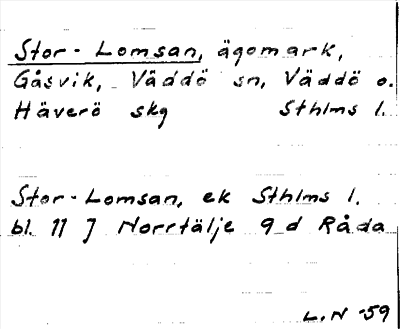 Stor-Lomsan, ägomark,
Gåsvik, Väddö sn, Väddö o.
Häverö skg Sthlms l.
Stor-Lomsan, ek Sthlms l.
bl. 11 J Norrtälje 9 d Råda
L.N -59